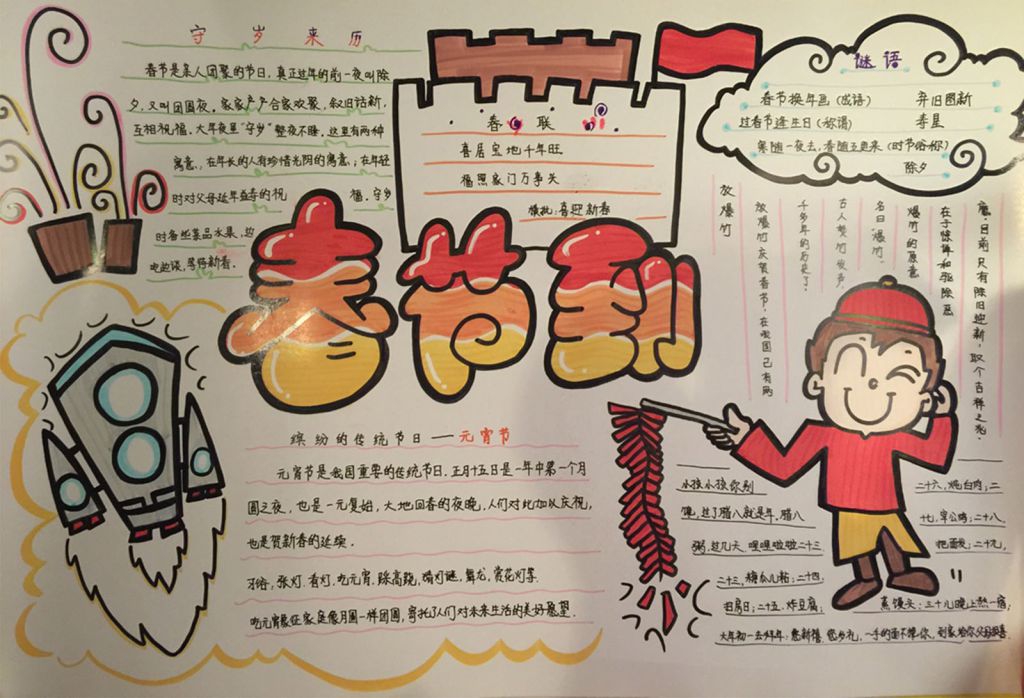 守岁来历
春节是亲人团聚的节日，真正过年的前一夜叫除
夕，又叫团圆夜，家家户户合家欢聚，叙旧话新，
互相祝福，大年夜里“守岁”整夜不睡，这里有两种
寓意，在年长的人有珍惜光阴的寓意；在年轻
时对父母延年益寿的祝 福，守岁
时备些菜品水果，边
吃边谈，等待新春。
春 联
喜居宝地千年旺
福照家门万事
横批：喜迎新春
谜语
春节换年画（成语） 弃旧图新
过春节逢生日（称谓） 李星
寒随一夜去，春随五更来（时节俗称）
除夕
春节到
放爆竹
放爆竹庆贺春节，在我国已有两
千多年的历史了。
古人焚竹发声，
名曰“爆竹”。
爆竹的原意
在于惊吓和驱除恶
魔，目前只有除旧迎新，取个吉祥之兆。
缤纷的传统节日——元宵节
元宵节是我国重要的传统节日，正月十五日是一年中第一个月
圆之夜，也是一元复始，大地回春的夜晚，人们对此加以庆祝，
也是贺新春的延续。
习俗，张灯，看灯，吃元宵，踩高跷，猜灯谜，舞龙，赏花灯等。
吃元宵象征家庭像月圆一样团圆，寄托了人们对未来生活的美好愿望
小孩小孩你别
馋，过了腊八就是年，腊八
粥，过几天，哩哩啦啦二十三
二十三，糖瓜儿粘；二十四，
扫房日；二十五，炸豆腐；
二十六，炖白肉；二
十七，宰公鸡；二十八，
把面发；二十九，
蒸馒头；三十儿晚上熬一宿；
大年初一去拜年：